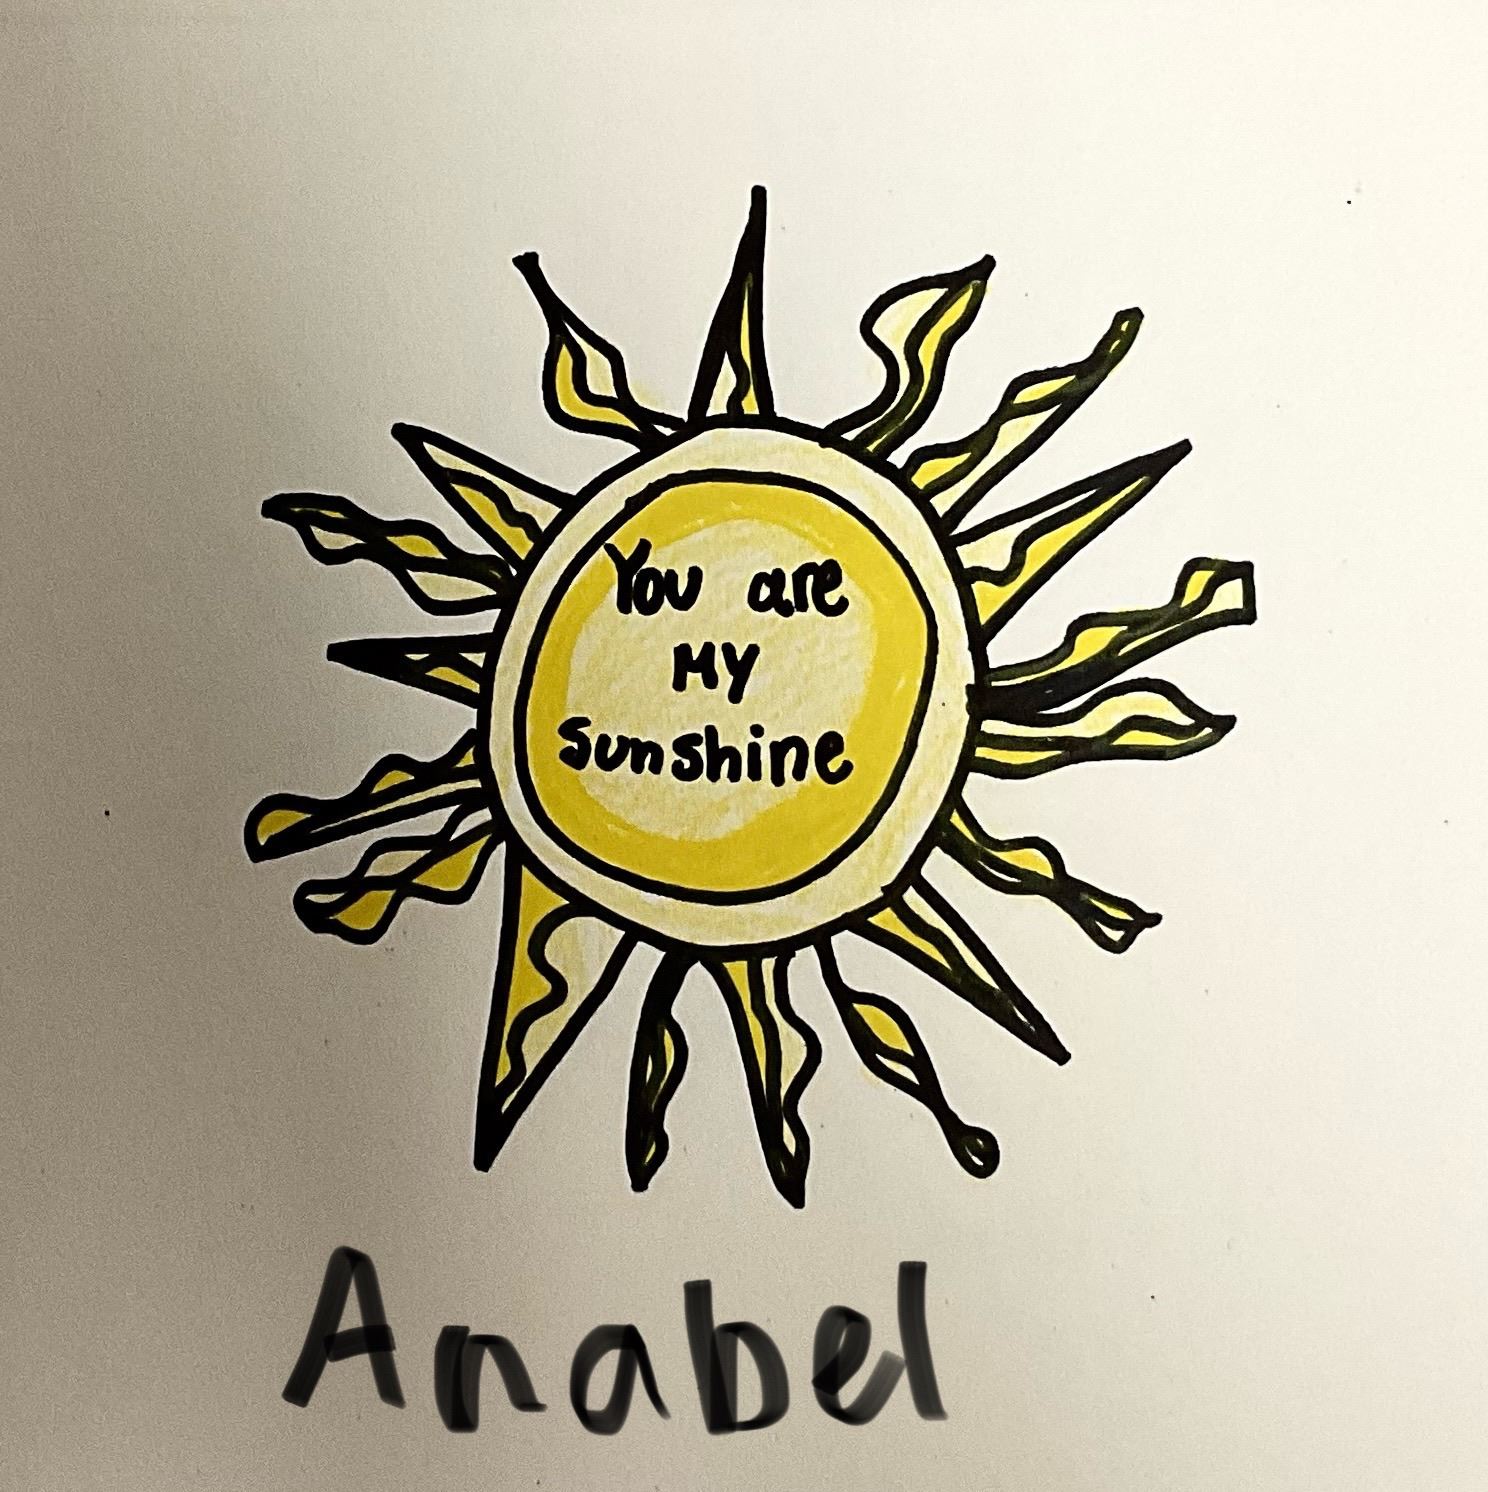 You are
MY
sunshine
Anabel